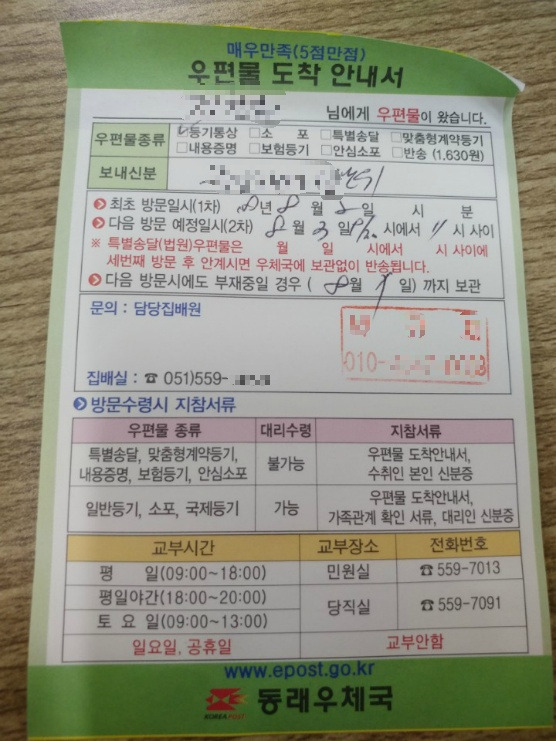 매우만족(5점만점)
우편물 도착 안내서
님에게 우편물이 왔습니다.
우편물종류 ☑등기통상 □소 포 □특별송달 □맞춤형계약등기
□내용증명 □보험등기 □안심소포 □반송 (1,630원)
보내신분
최초 방문일시(1차) 년 8 월 일 시 분
다음 방문 예정일시(2차) 8 월 3 일 시에서 11 시 사이
※ 특별송달(법원)우편물은 월 일 시에서 시 사이에
세번째 방문 후 안계시면 우체국에 보관없이 반송됩니다.
다음 방문시에도 부재중일 경우 ( 8월 일) 까지 보관
문의 : 담당집배원
010-
집배실 : ☎ 051)559-
방문수령시 지참서류
우편물 종류 대리수령 지참서류
특별송달, 맞춤형계약등기,
내용증명, 보험등기, 안심소포
불가능
우편물 도착안내서,
수취인 본인 신분증
일반등기, 소포, 국제등기
가능
우편물 도착안내서,
가족관계 확인 서류, 대리인 신분증
교부시간 교부장소 전화번호
평 일(09:00~18:00) 민원실 ☎ 559-7013
평일야간(18:00~20:00) 당직실 ☎ 559-7091
토 요 일(09:00~13:00)
일요일, 공휴일 교부안함
www.epost.go.kr
KOREA POST 동래우체국